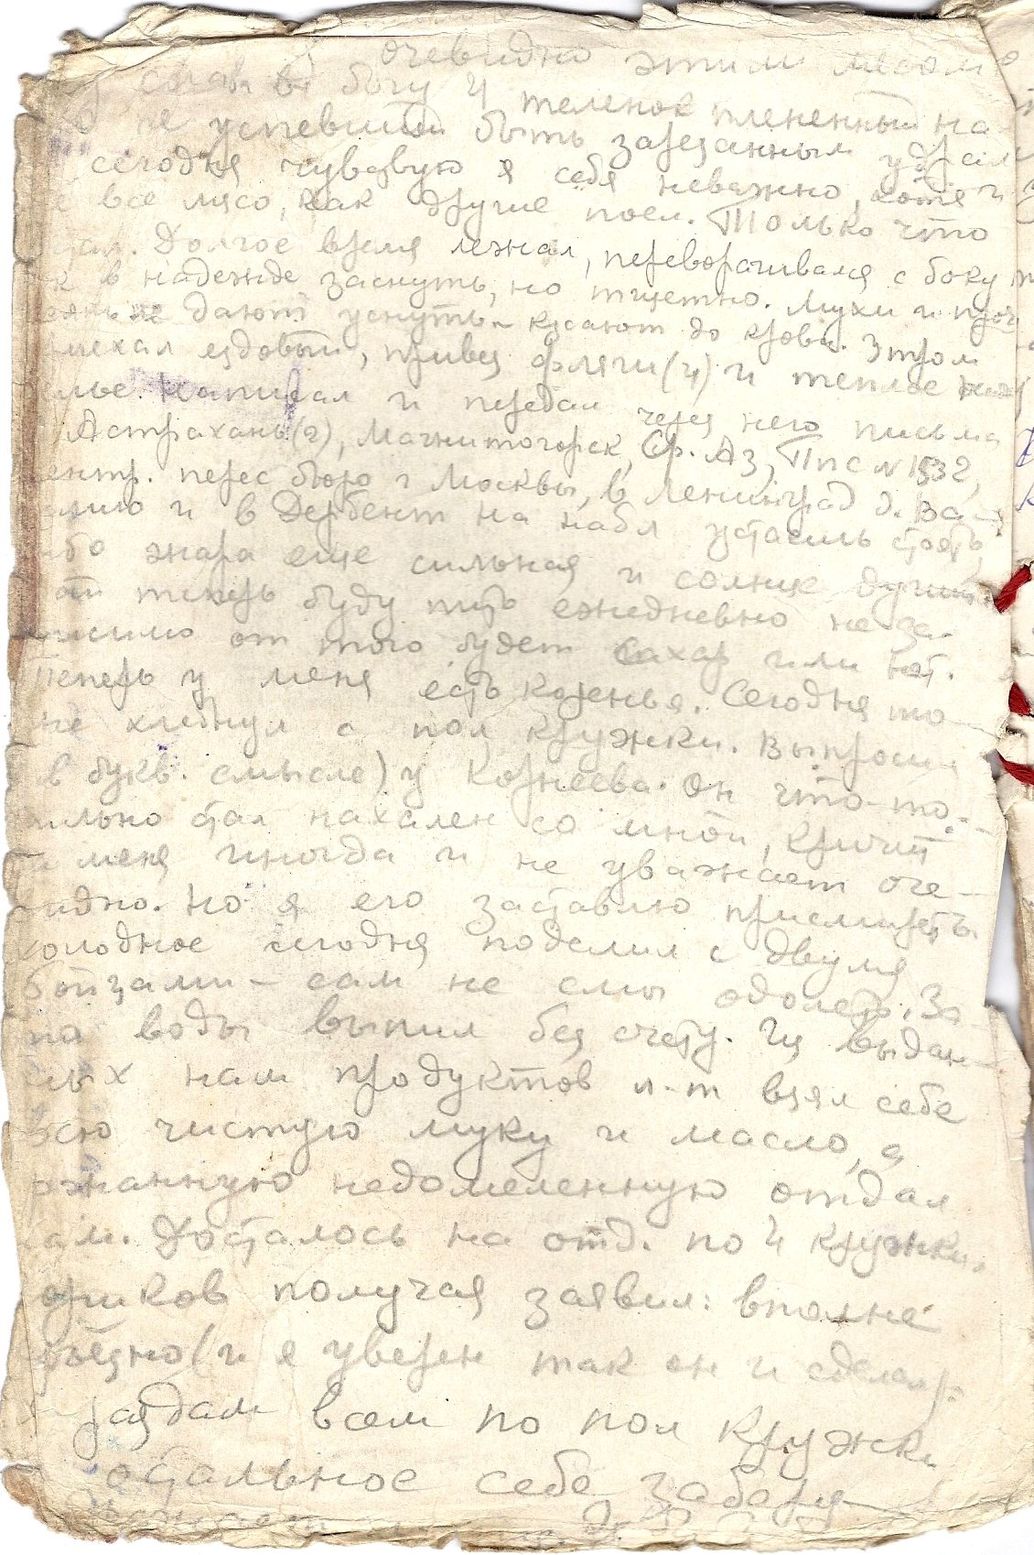 очевидно этим мясом
боку и теленок плененный на
не успевший быть зарезанным удрал
сегодня чувствую я себя неважно, хотя и
е все мясо, как другие поел. Только что
стал. Долгое время лежал, переворачивался с боку
к в надежде заснуть, но тщетно. Мухи и проч
не дают уснуть - кусают до крови. Утром
риехал ездовый, привез фляги (4) и теплое
лье. Написал и передал через него письма
Астрахань (2), Магнитогорск, Ср. Аз, ППС № 1532,
ентр. перес бюро г Москвы, в Ленинград д. Ва
и в Дербент на набл
ибо жара еще сильная и солнце
теперь буду пить ежедневно не за-
висимо от того будет сахар или нет.
Теперь у меня есть коренья. Сегодня то-
же хлебнул с пол кружки. Выпросил
в букв. смысле) у Корнеева. Он что-то
сильно стал нахален со мной, кричит
на меня иногда и не уважает оче-
видно. Но я его заставлю присмиреть.
холодное сегодня поделил с двумя
бойцами - сам не смог одолеть. За-
то воды выпил без счету. Из выдан-
ных нам продуктов л-т взял себе
всю чистую муку и масло, а
ржанную недомеленную отдал
нам. Досталось на отд. по 4 кружки.
ориков получая заявил: вполне
рьезно (и я уверен так он и сделал):
раздам всем по пол кружки
остальное себе заберу